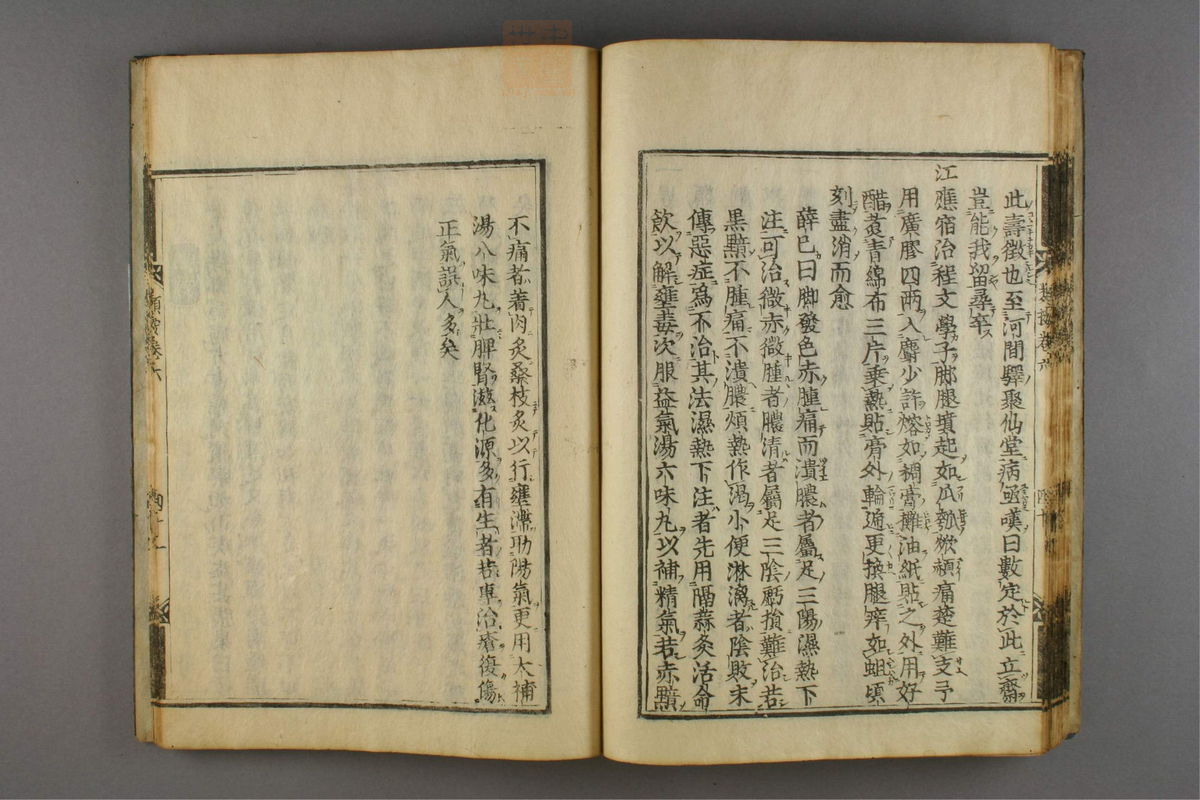 此壽徵也至河間驛聚仙堂病亟嘆曰數定於此立齋
豈能我留尋卒
江應宿治程文學子脚腿墳起如瓜瓠掀顙痛楚難支予
用廣膠四兩入麝少許熔如稠膏攤油紙貼之外用好
醋煮青綿布三片乗熱貼膏外輪通更換腿痒如蛆頃
刻盡消而愈
薛已曰脚發色赤腫痛而潰膿者屬足三陽濕熱下
注可治微赤微腫者膿清者屬足三陰虧損難治若
黒黯不腫痛不潰膿煩熱作渇小便淋漓者陰敗末
傳惡症爲不治其法濕熱下注者先用隔蒜灸活命
飲以解壅毒次服益氣湯六味丸以補精氣若赤黯
不痛者著肉灸桑枝灸以行壅滯助陽氣更用大補
湯八味丸壯脾腎滋化源多有生者若専治瘡復傷
正氣誤人多矣